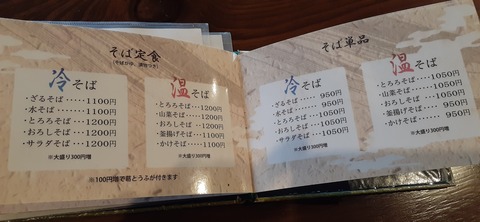 そば定食
冷そば
・ざるそば・・・・・1100円
・水そば・・・・・・1100円
・とろろそば・・・・1200円
・おろしそば・・・・1200円
・サラダそば・・・・1200円
※大盛り300円増
温そば
・とろろそば・・・・1200円
・山菜そば・・・・・1200円
・おろしそば・・・・1200円
・釜揚げそば・・・・1100円
・かけそば・・・・・1100円
※大盛り300円増
※100円増で筋とうふが付きます
そば単品
冷そば
・ざるそば・・・・・950円
・水そば・・・・・・950円
・とろろそば・・・・1050円
・おろしそば・・・・1050円
・サラダそば・・・・1050円
※大盛り300円増
温そば
・とろろそば・・・・1050円
・山菜そば・・・・・1050円
・おろしそば・・・・1050円
・釜揚げそば・・・・950円
・かけそば・・・・・950円
※大盛り300円増